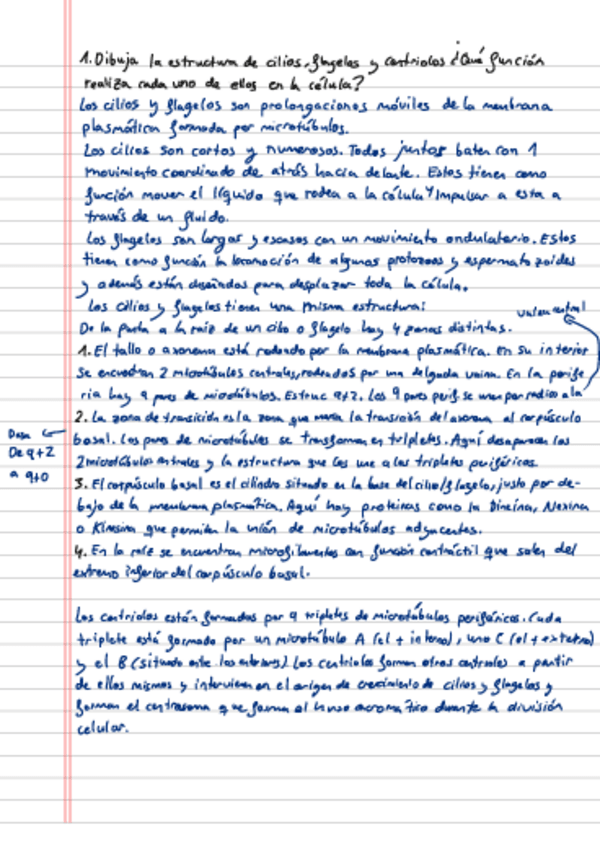 1. Dibuja la estructura de cilios, flagelos y centriolos ¿Qué función
realiza cada uno de ellos en la célula?
Los cilios y flagelos son prolongaciones móviles de la membrana
plasmática formada por microtúbulos.
Los cilios son cortos y numerosos. Todos juntos baten con 1
movimiento coordinado de atrás hacia delante. Estos tienen como
función mover el líquido que rodea a la célula y impulsar a esta a
través de un fluido.
Los flagelos son largos y escasos con un movimiento ondulatorio. Estos
tienen como función la locomoción de algunas protozoos y espermatozoides
y además están diseñados para desplazar toda la célula.
Los cilios y flagelos tienen una misma estructura:
vaina central
De la punta a la raiz de un cilio o flagelo hay 4 zonas distintas.
1. El tallo o axonema está rodeado por la membrana plasmática. En su interior
se encuentran 2 microtúbulos centrales, rodeados por una delgada vaina. En la perife
ria hay 9 pares de microtúbulos. Estruc 9+2. Los 9 pares perif. se unen por radios a la
2. La zona de transición es la zona que marca la transición del axonema al corpúsculo
Pasa
De 9+2
a 9+0
basal. Los pares de microtúbulos se transforman en tripletes. Aquí desaparecen los
2 microtúbulos centrales y la estructura que les une a los tripletes periféricos.
3. El corpúsculo basal es el cilindro situado en la base del cilio/flagelo, justo por de-
bajo de la membrana plasmática. Aquí hay proteínas como la Dineína, Nexina
o Kinesina que permiten la unión de microtúbulos adyacentes.
4. En la raíz se encuentran microfilamentos con función contráctil que salen del
extremo inferior del corpúsculo basal.
Los centriolos están formados por 9 tripletes de microtúbulos periféricos. Cada
triplete está formado por un microtúbulo A (el + interno), uno C (el + externo)
y el B (situado entre los anteriores). Los centriolos forman otros centriolos a partir
de ellos mismos y intervienen en el origen de crecimiento de cilios y flagelos y
forman el centrosoma que forma el huso acromático durante la división
celular.